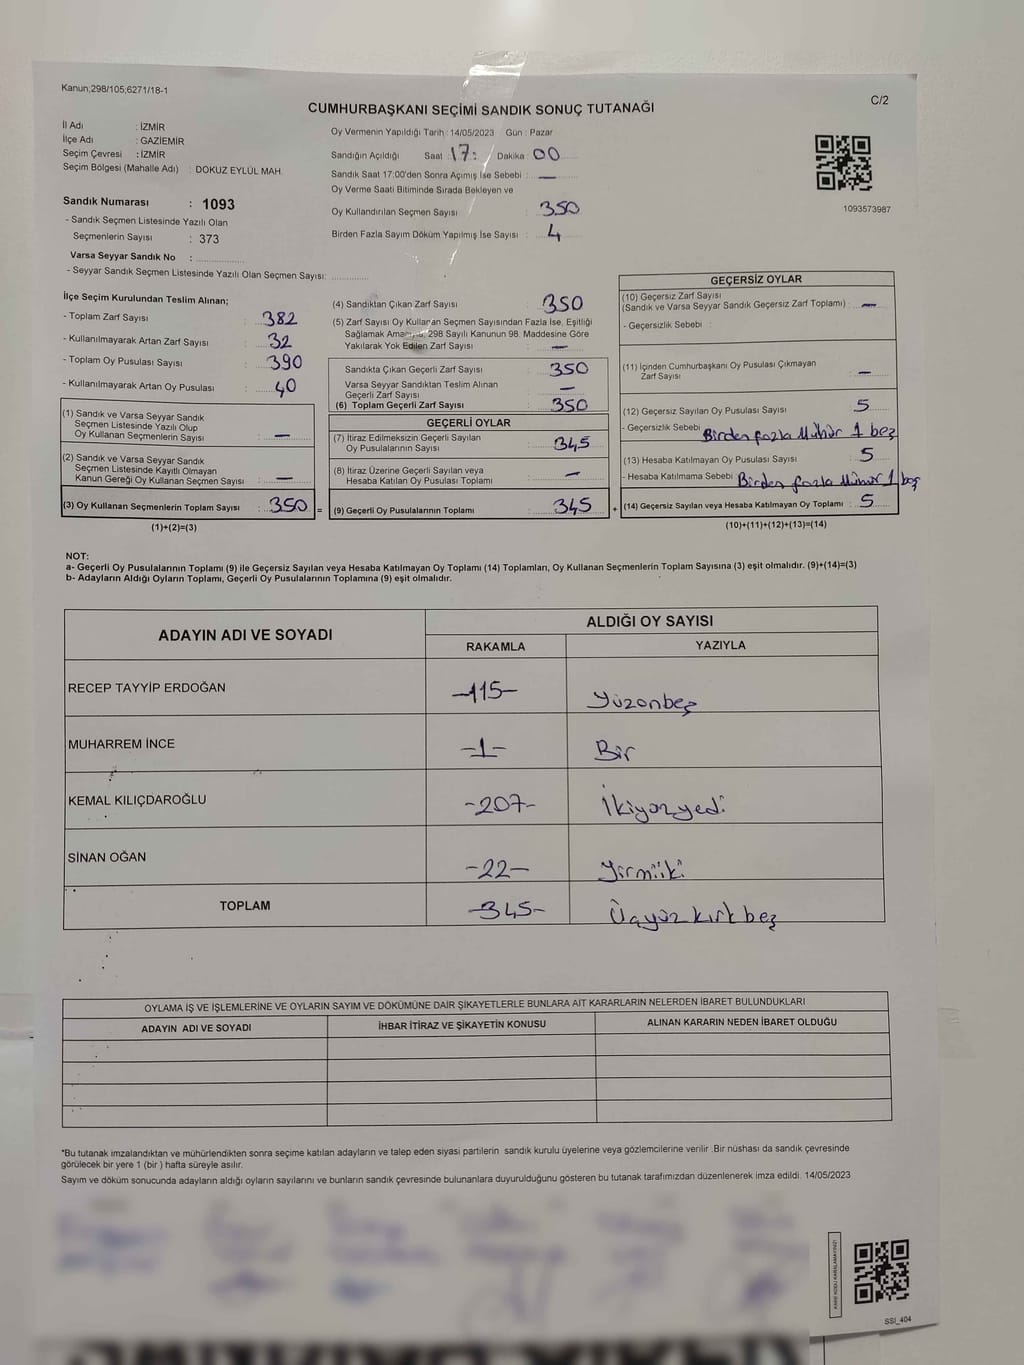 Kanun;298/105;6271/18-1
C/2
CUMHURBAŞKANI SEÇİMİ SANDIK SONUÇ TUTANAĞI
İl Adı : İZMİR
İlçe Adı : GAZİEMİR
Seçim Çevresi : İZMİR
Seçim Bölgesi (Mahalle Adı) : DOKUZ EYLÜL MAH.
Sandık Numarası : 1093
- Sandık Seçmen Listesinde Yazılı Olan
Seçmenlerin Sayısı : 373
Varsa Seyyar Sandık No :
- Seyyar Sandık Seçmen Listesinde Yazılı Olan Seçmen Sayısı:
Oy Vermenin Yapıldığı Tarih : 14/05/2023 Gün : Pazar
Sandığın Açıldığı Saat : 17: Dakika : 00
Sandık Saat 17:00'den Sonra Açımış İse Sebebi : —
Oy Verme Saati Bitiminde Sırada Bekleyen ve
Oy Kullandırılan Seçmen Sayısı : 350
Birden Fazla Sayım Döküm Yapılmış İse Sayısı : 4
1093573987
İlçe Seçim Kurulundan Teslim Alınan;
- Toplam Zarf Sayısı : 382
- Kullanılmayarak Artan Zarf Sayısı : 32
- Toplam Oy Pusulası Sayısı : 390
- Kullanılmayarak Artan Oy Pusulası : 40
(1) Sandık ve Varsa Seyyar Sandık
Seçmen Listesinde Yazılı Olup
Oy Kullanan Seçmenlerin Sayısı : —
(2) Sandık ve Varsa Seyyar Sandık
Seçmen Listesinde Kayıtlı Olmayan
Kanun Gereği Oy Kullanan Seçmen Sayısı : —
(3) Oy Kullanan Seçmenlerin Toplam Sayısı : 350 =
(1)+(2)=(3)
(4) Sandıktan Çıkan Zarf Sayısı : 350
(5) Zarf Sayısı Oy Kullanan Seçmen Sayısından Fazla İse, Eşitliği
Sağlamak 298 Sayılı Kanunun 98. Maddesine Göre
Yakılarak Yok Edilen Zarf Sayısı : —
Sandıkta Çıkan Geçerli Zarf Sayısı : 350
Varsa Seyyar Sandıktan Teslim Alınan
Geçerli Zarf Sayısı : —
(6) Toplam Geçerli Zarf Sayısı : 350
GEÇERLİ OYLAR
(7) İtiraz Edilmeksizin Geçerli Sayılan
Oy Pusulalarının Sayısı : 345
(8) İtiraz Üzerine Geçerli Sayılan veya
Hesaba Katılan Oy Pusulası Toplamı : —
(9) Geçerli Oy Pusulalarının Toplamı : 345 +
GEÇERSİZ OYLAR
(10) Geçersiz Zarf Sayısı
(Sandık ve Varsa Seyyar Sandık Geçersiz Zarf Toplamı) : —
- Geçersizlik Sebebi :
(11) İçinden Cumhurbaşkanı Oy Pusulası Çıkmayan
Zarf Sayısı : —
(12) Geçersiz Sayılan Oy Pusulası Sayısı : 5
- Geçersizlik Sebebi : Birden fazla Mühür 1 beş
(13) Hesaba Katılmayan Oy Pusulası Sayısı : 5
- Hesaba Katılmama Sebebi : Birden fazla Mühür 1 beş
(14) Geçersiz Sayılan veya Hesaba Katılmayan Oy Toplamı : 5
(10)+(11)+(12)+(13)=(14)
NOT:
a- Geçerli Oy Pusulalarının Toplamı (9) ile Geçersiz Sayılan veya Hesaba Katılmayan Oy Toplamı (14) Toplamları, Oy Kullanan Seçmenlerin Toplam Sayısına (3) eşit olmalıdır. (9)+(14)=(3)
b- Adayların Aldığı Oyların Toplamı, Geçerli Oy Pusulalarının Toplamına (9) eşit olmalıdır.
ADAYIN ADI VE SOYADI ALDIĞI OY SAYISI
RAKAMLA YAZIYLA
RECEP TAYYİP ERDOĞAN -115- Yüzonbeş
MUHARREM İNCE -1- Bir
KEMAL KILIÇDAROĞLU -207- İkiyüzyedi
SİNAN OĞAN -22- Yirmiiki
TOPLAM -345- Üçyüz kırk beş
OYLAMA İŞ VE İŞLEMLERİNE VE OYLARIN SAYIM VE DÖKÜMÜNE DAİR ŞİKAYETLERLE BUNLARA AİT KARARLARIN NELERDEN İBARET BULUNDUKLARI
ADAYIN ADI VE SOYADI İHBAR İTİRAZ VE ŞİKAYETİN KONUSU ALINAN KARARIN NEDEN İBARET OLDUĞU
*Bu tutanak imzalandıktan ve mühürlendikten sonra seçime katılan adayların ve talep eden siyasi partilerin sandık kurulu üyelerine veya gözlemcilerine verilir .Bir nüshası da sandık çevresinde
görülecek bir yere 1 (bir ) hafta süreyle asılır.
Sayım ve döküm sonucunda adayların aldığı oyların sayılarını ve bunların sandık çevresinde bulunanlara duyurulduğunu gösteren bu tutanak tarafımızdan düzenlenerek imza edildi. 14/05/2023
KARE KODU KARALAMAYINIZ!
SSI_404